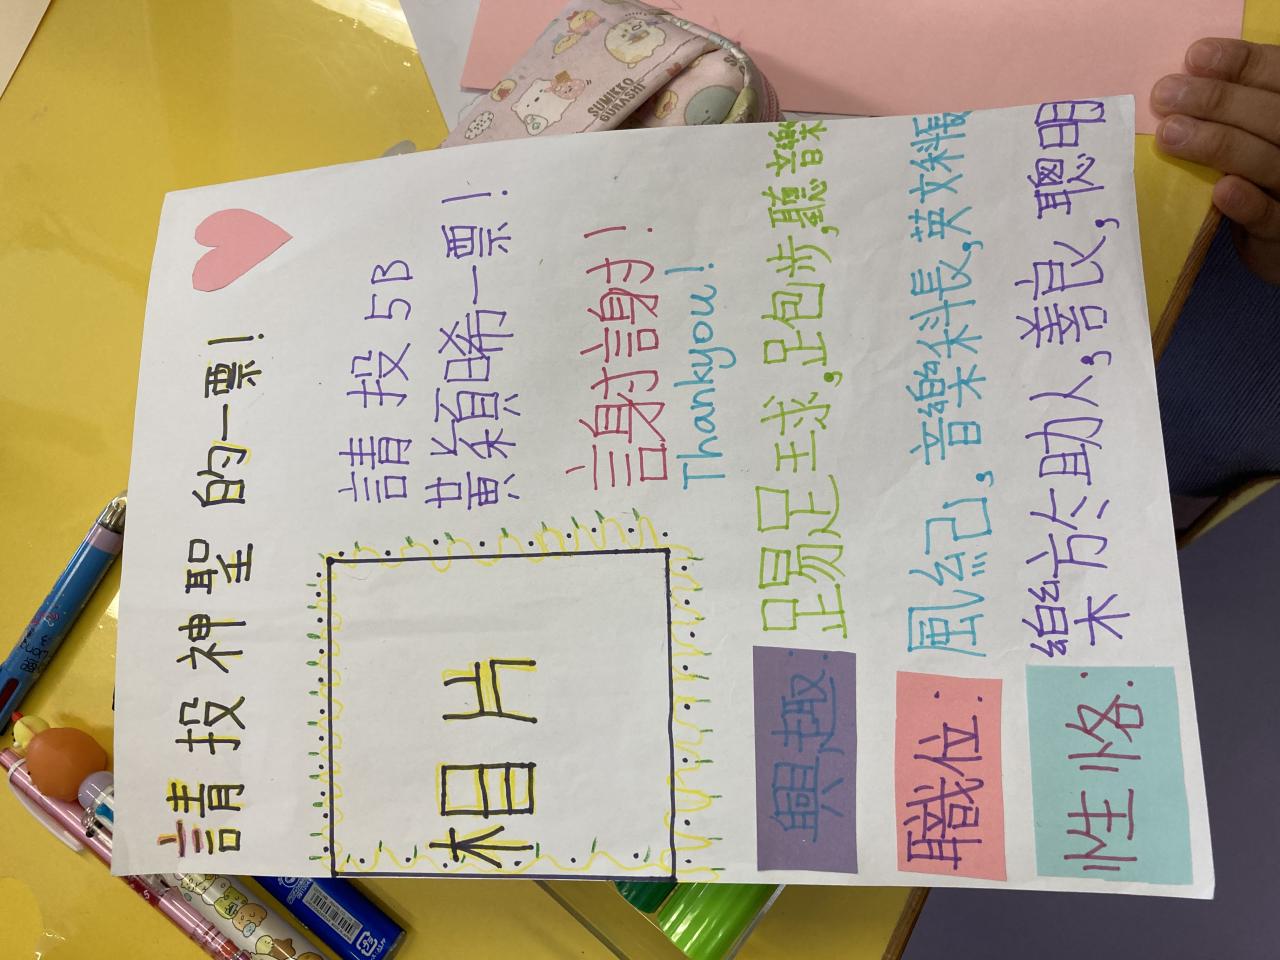 請投神聖的一票！
請投5B
黃穎晞一票！
相片
謝謝！
Thankyou！
興趣：踢足球，跑步，聽音樂
職位：風紀，音樂科長，英文科長
性格：樂於助人，善良，聰明
SUMIKKO
GURASHI